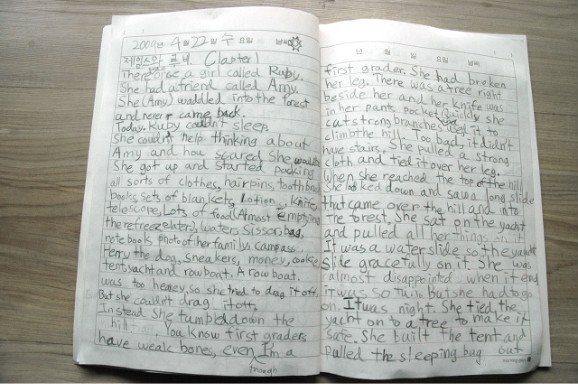 2009년 4월 22일 수요일 날씨
제임스와 루비 Chapter 1
There once a girl called Ruby.
She had a friend called Amy.
She (Amy) waddled into the forest
and never came back.
Today Ruby couldn't sleep.
She couldn't help thinking about
Amy and how scared she
She got up and started packing
all sorts of clothes, hairpins, toothbrush
books, sets of blankets, lotion, knife,
telescope, Lots of food (Almost emptying
the refreezelator), water, sissors, bag,
note book, photo of her family, compass
Terry the dog, sneakers, money, cookie
tent, yacht and rowboat. A row boat
was too heavey, so she tried to drag it off,
But she couldn't drag it off,
Instead she tumbled down the
hill. You know first graders
have weak bones, even I'm a
년 월 일 요일 날씨
first grader. She had broken
her leg. There was a tree right
beside her and her knife was
in her pants pocket. Quickly she
cuts strong branches used it to
climb the hill. Too bad, it didn't
have stairs. She pulled a strong
cloth and tied it over her leg.
When she reached the top of the hill
she looked down and saw a long slide
that came over the hill and into
the forest. She sat on the yacht
and pulled all her things on it.
It was a waterslide so the yacht
slide gracefully on it. She was
almost disappointed when it end
it was so fun but she had to go
on. It was night. She tied the
yacht on to a tree to make it
safe. She built the tent and
pulled the sleeping bag out